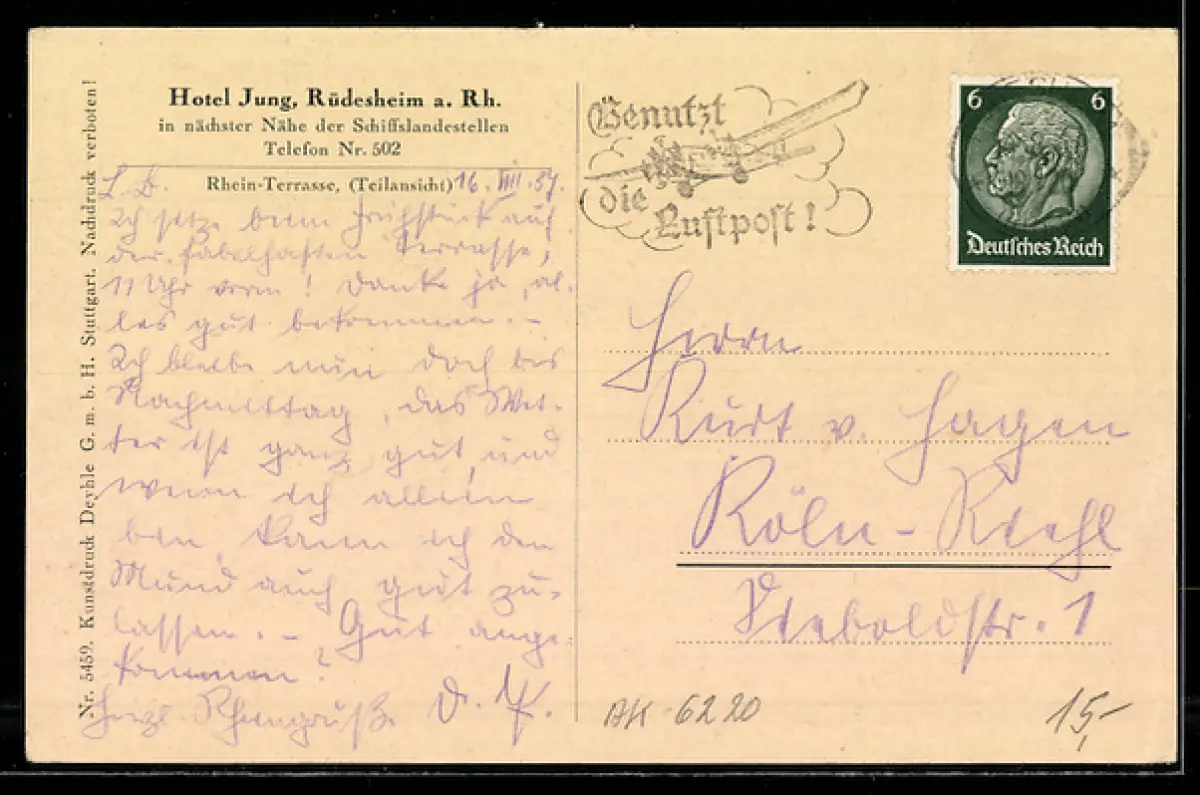 Hotel Jung, Rüdesheim a. Rh.
in nächster Nähe der Schiffslandestellen
Telefon Nr. 502
Rhein-Terrasse, (Teilansicht) 16. VIII. 37.
L. B.
Ich sitze beim Frühstück auf
der fabelhaften Terrasse,
11 Uhr vorm! Danke ja, al-
les gut bekommen. -
Ich bleibe nun doch bis
Nachmittag, das Wet-
ter ist ganz gut, und
wenn ich allein
bin, kann ich den
Mund auch gut zu-
lassen. - Gut ange-
kommen?
Herzl. Rheingruß. D.
Nr. 5459. Kunstdruck Deyhle G. m. b. H. Stuttgart. Nachdruck verboten!
Benutzt
die
Luftpost!
6 6
Deutsches Reich
Herrn
Kurt v. Hagen
Köln-Riehl
Str. 1
AK 6220
15,-